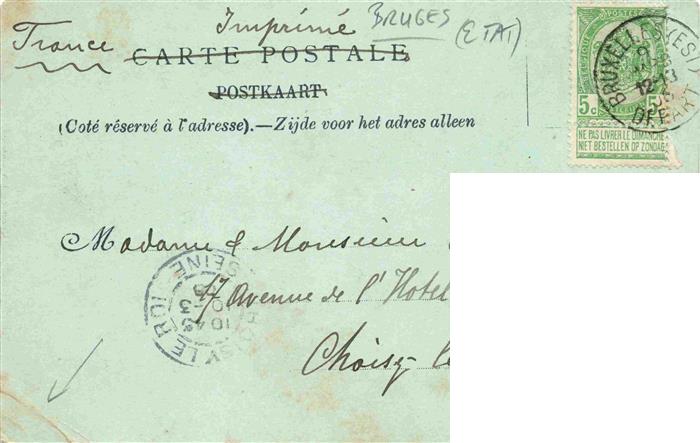 Imprimé BRUGES
(ETAT)
France
CARTE POSTALE
POSTKAART
(Coté réservé à l'adresse).—Zijde voor het adres alleen
5c 5c
NE PAS LIVRER LE DIMANCHE
NIET BESTELLEN OP ZONDAG
BRUXELLES
12-13
DEPART
Madame & Monsieur
17 Avenue de l'Hotel
Choisy le
SEINE
10